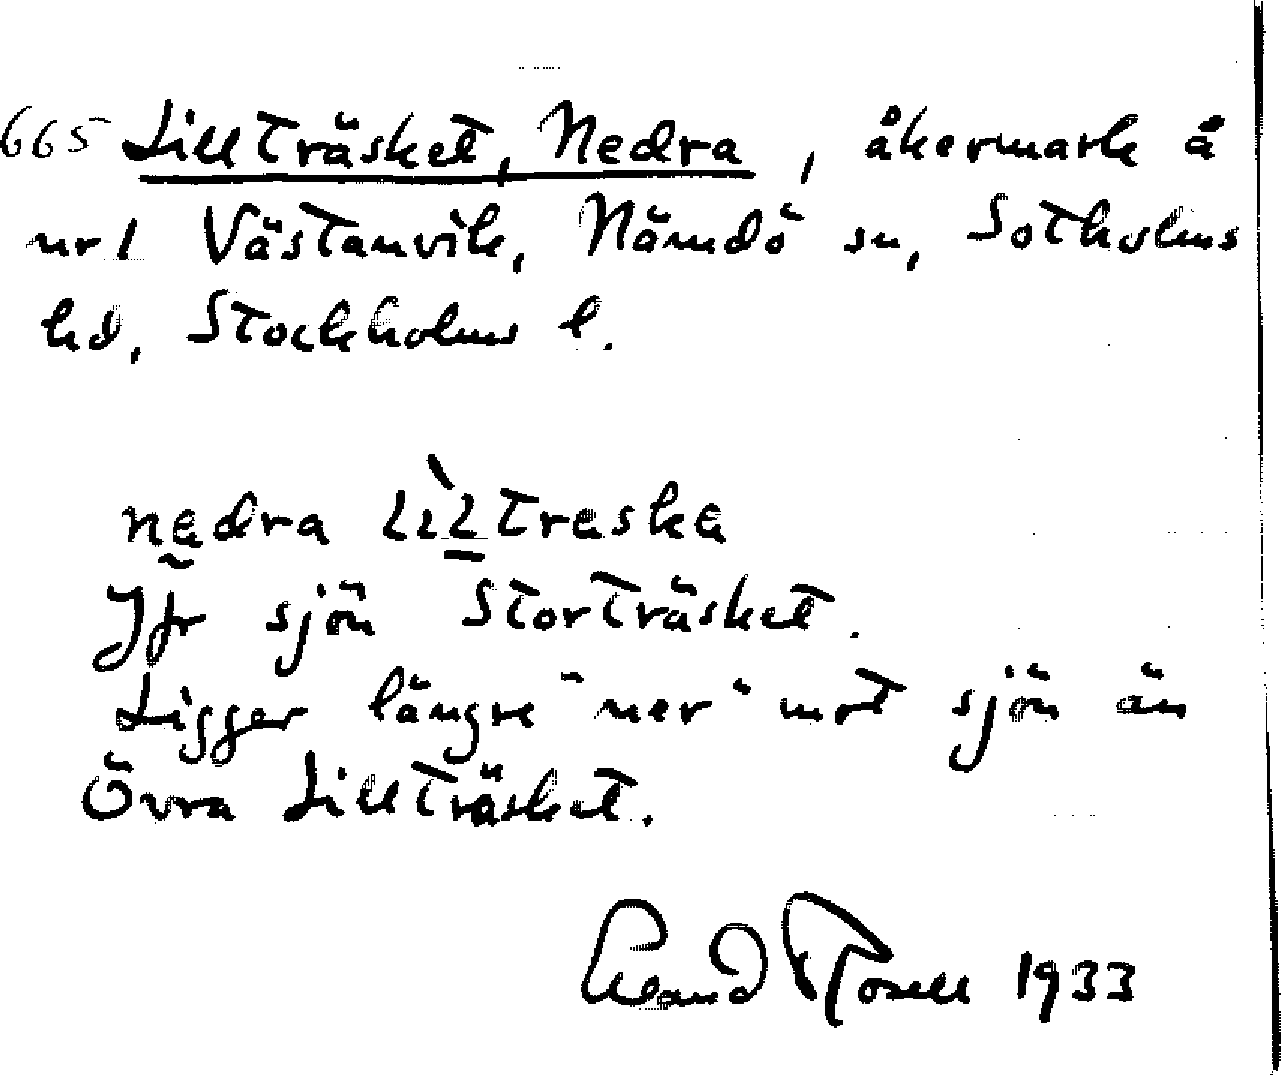 665 Lillträsket, Nedra, åkermark å
nr 1 Västanvik, Nämdö sn, Sotholms
hd, Stockholms l.
nedra lìltreska
Jfr sjön Storträsket.
Ligger längre "ner" mot sjön än
Övra Lillträsket.
Rosell 1933